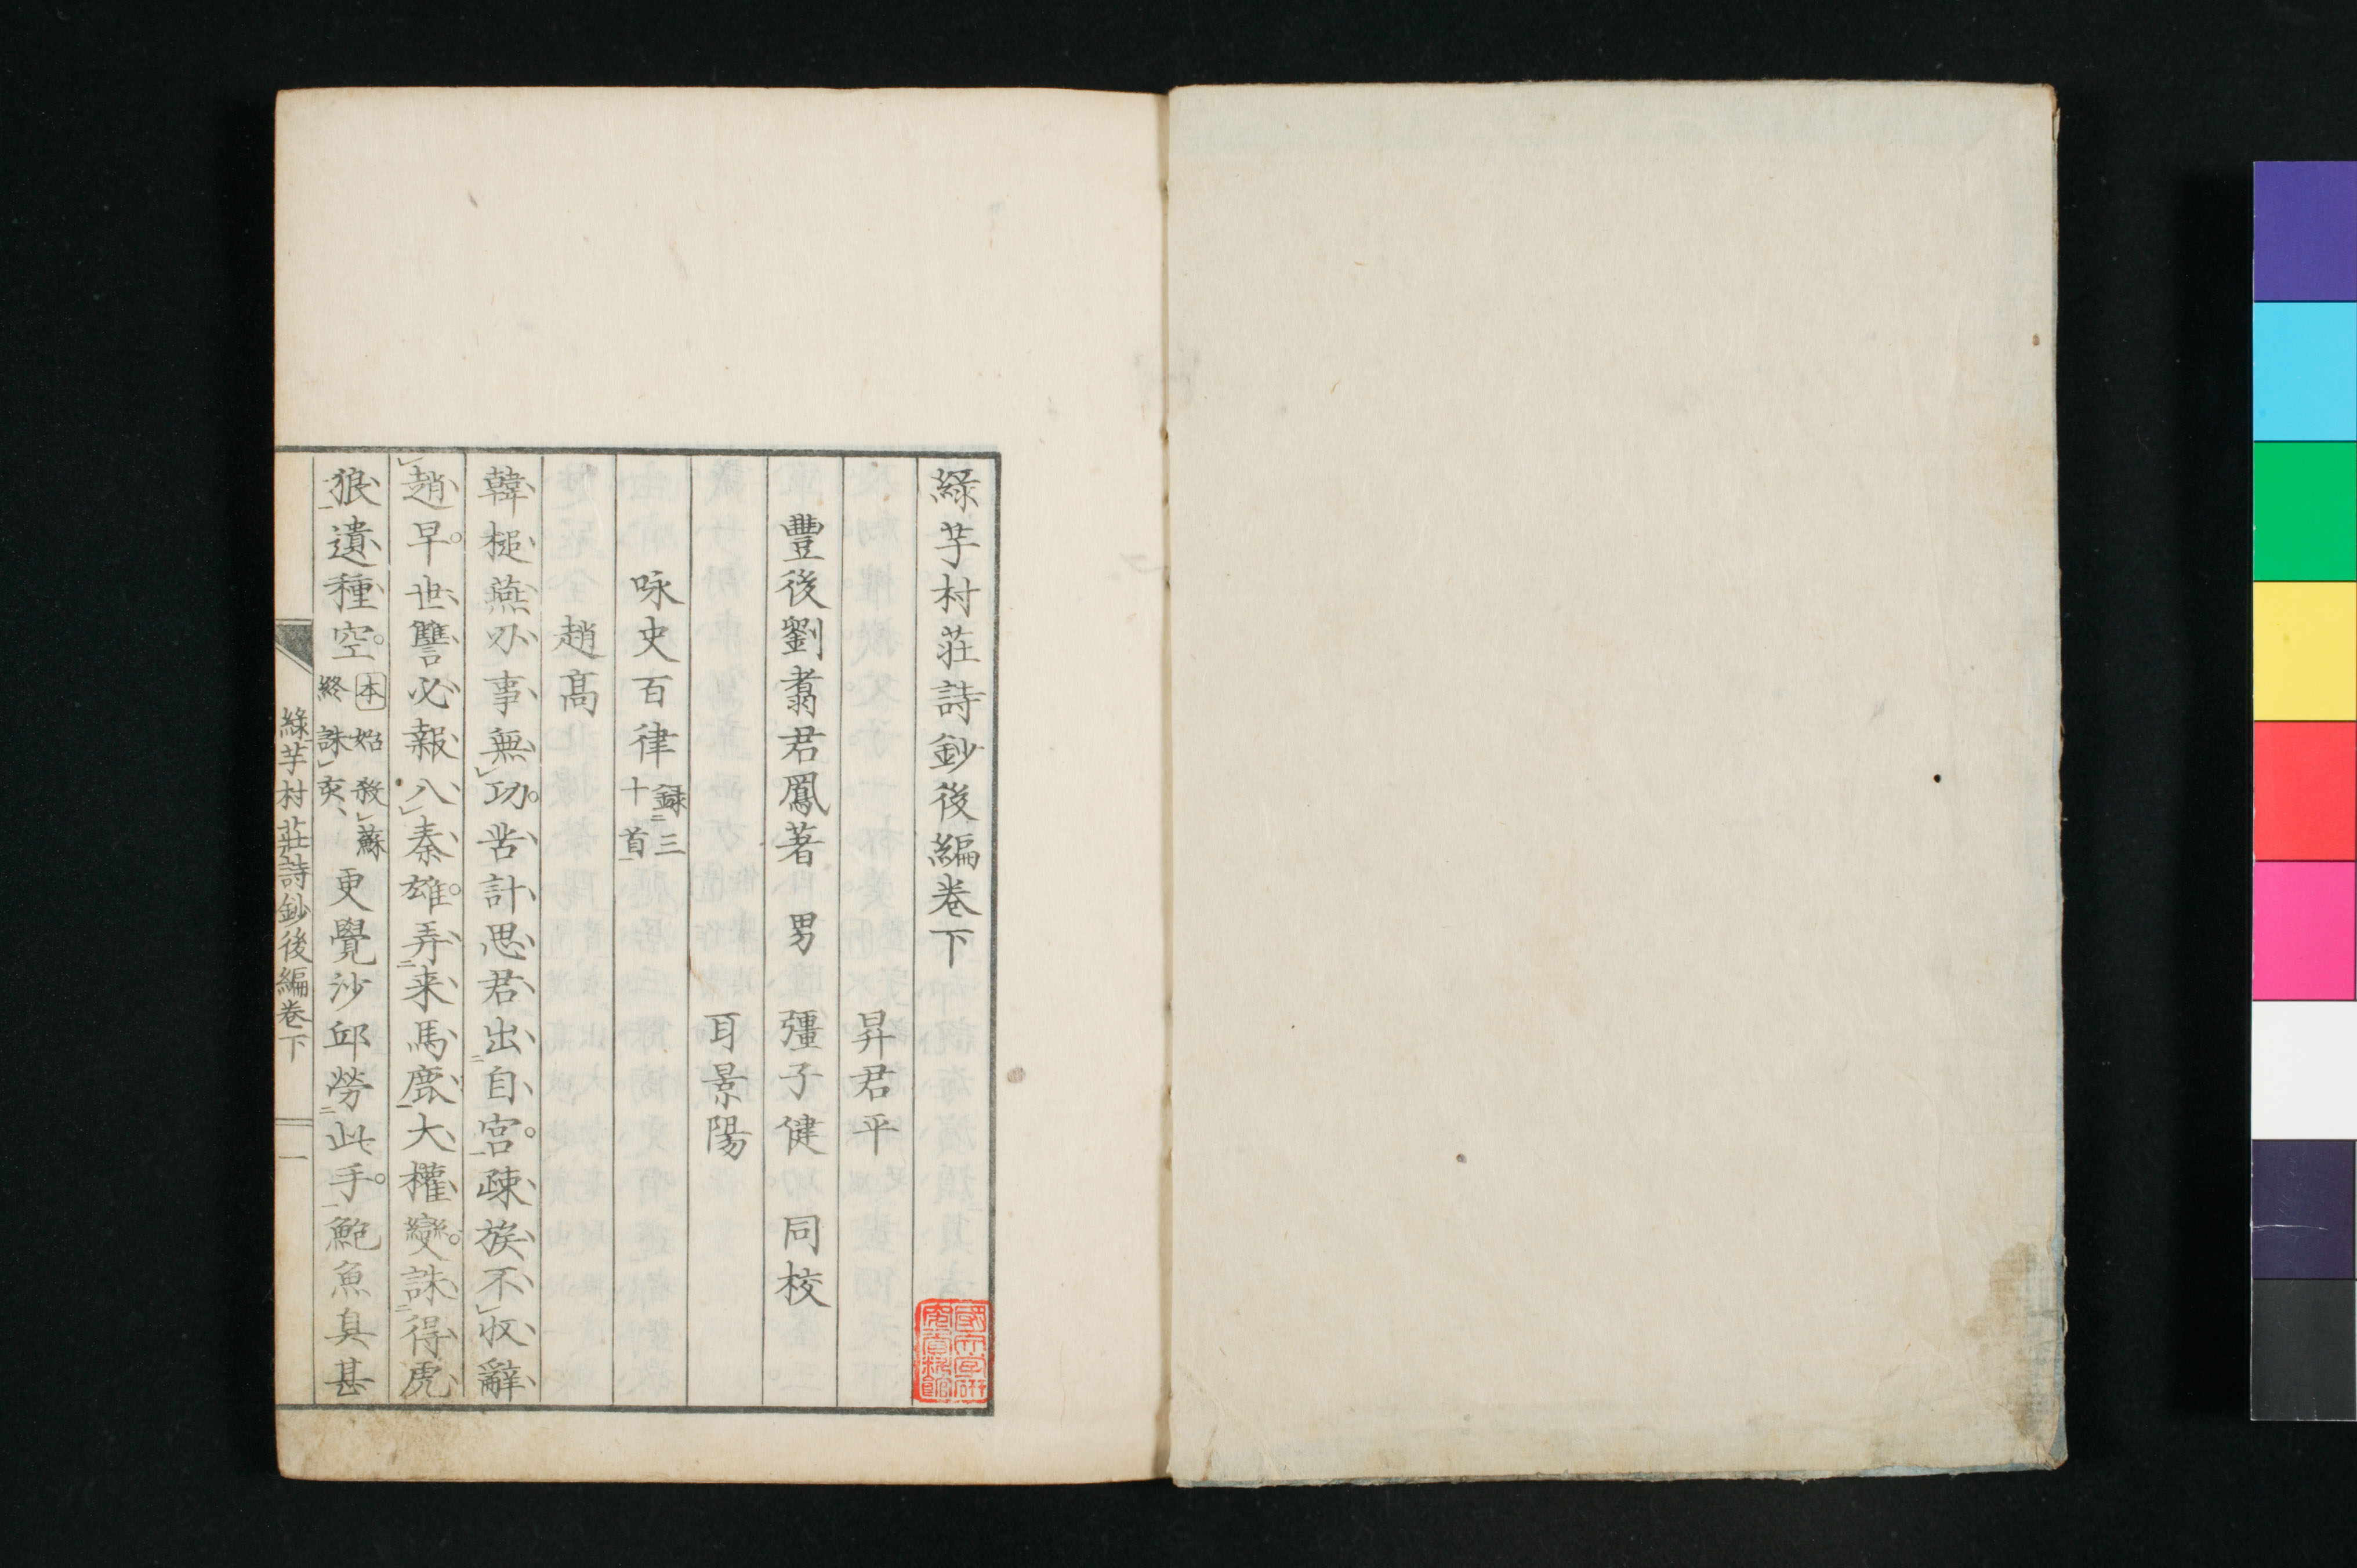 綠芋村莊詩鈔後編卷下
昇君平
豐後劉翥君鳳著　男　彊子健　同校
耳景陽
咏史百律
錄三
十首
趙高
韓槌燕刅事無功。苦計思君出自宮。疎族不收辭
趙早。世讐必報入秦雄。弄来馬鹿大權變。誅得虎
狼遺種空。
本始殺蘇
終誅亥、
更覺沙邱勞此手。鮑魚臭甚
綠芋村莊詩鈔後編卷下
一